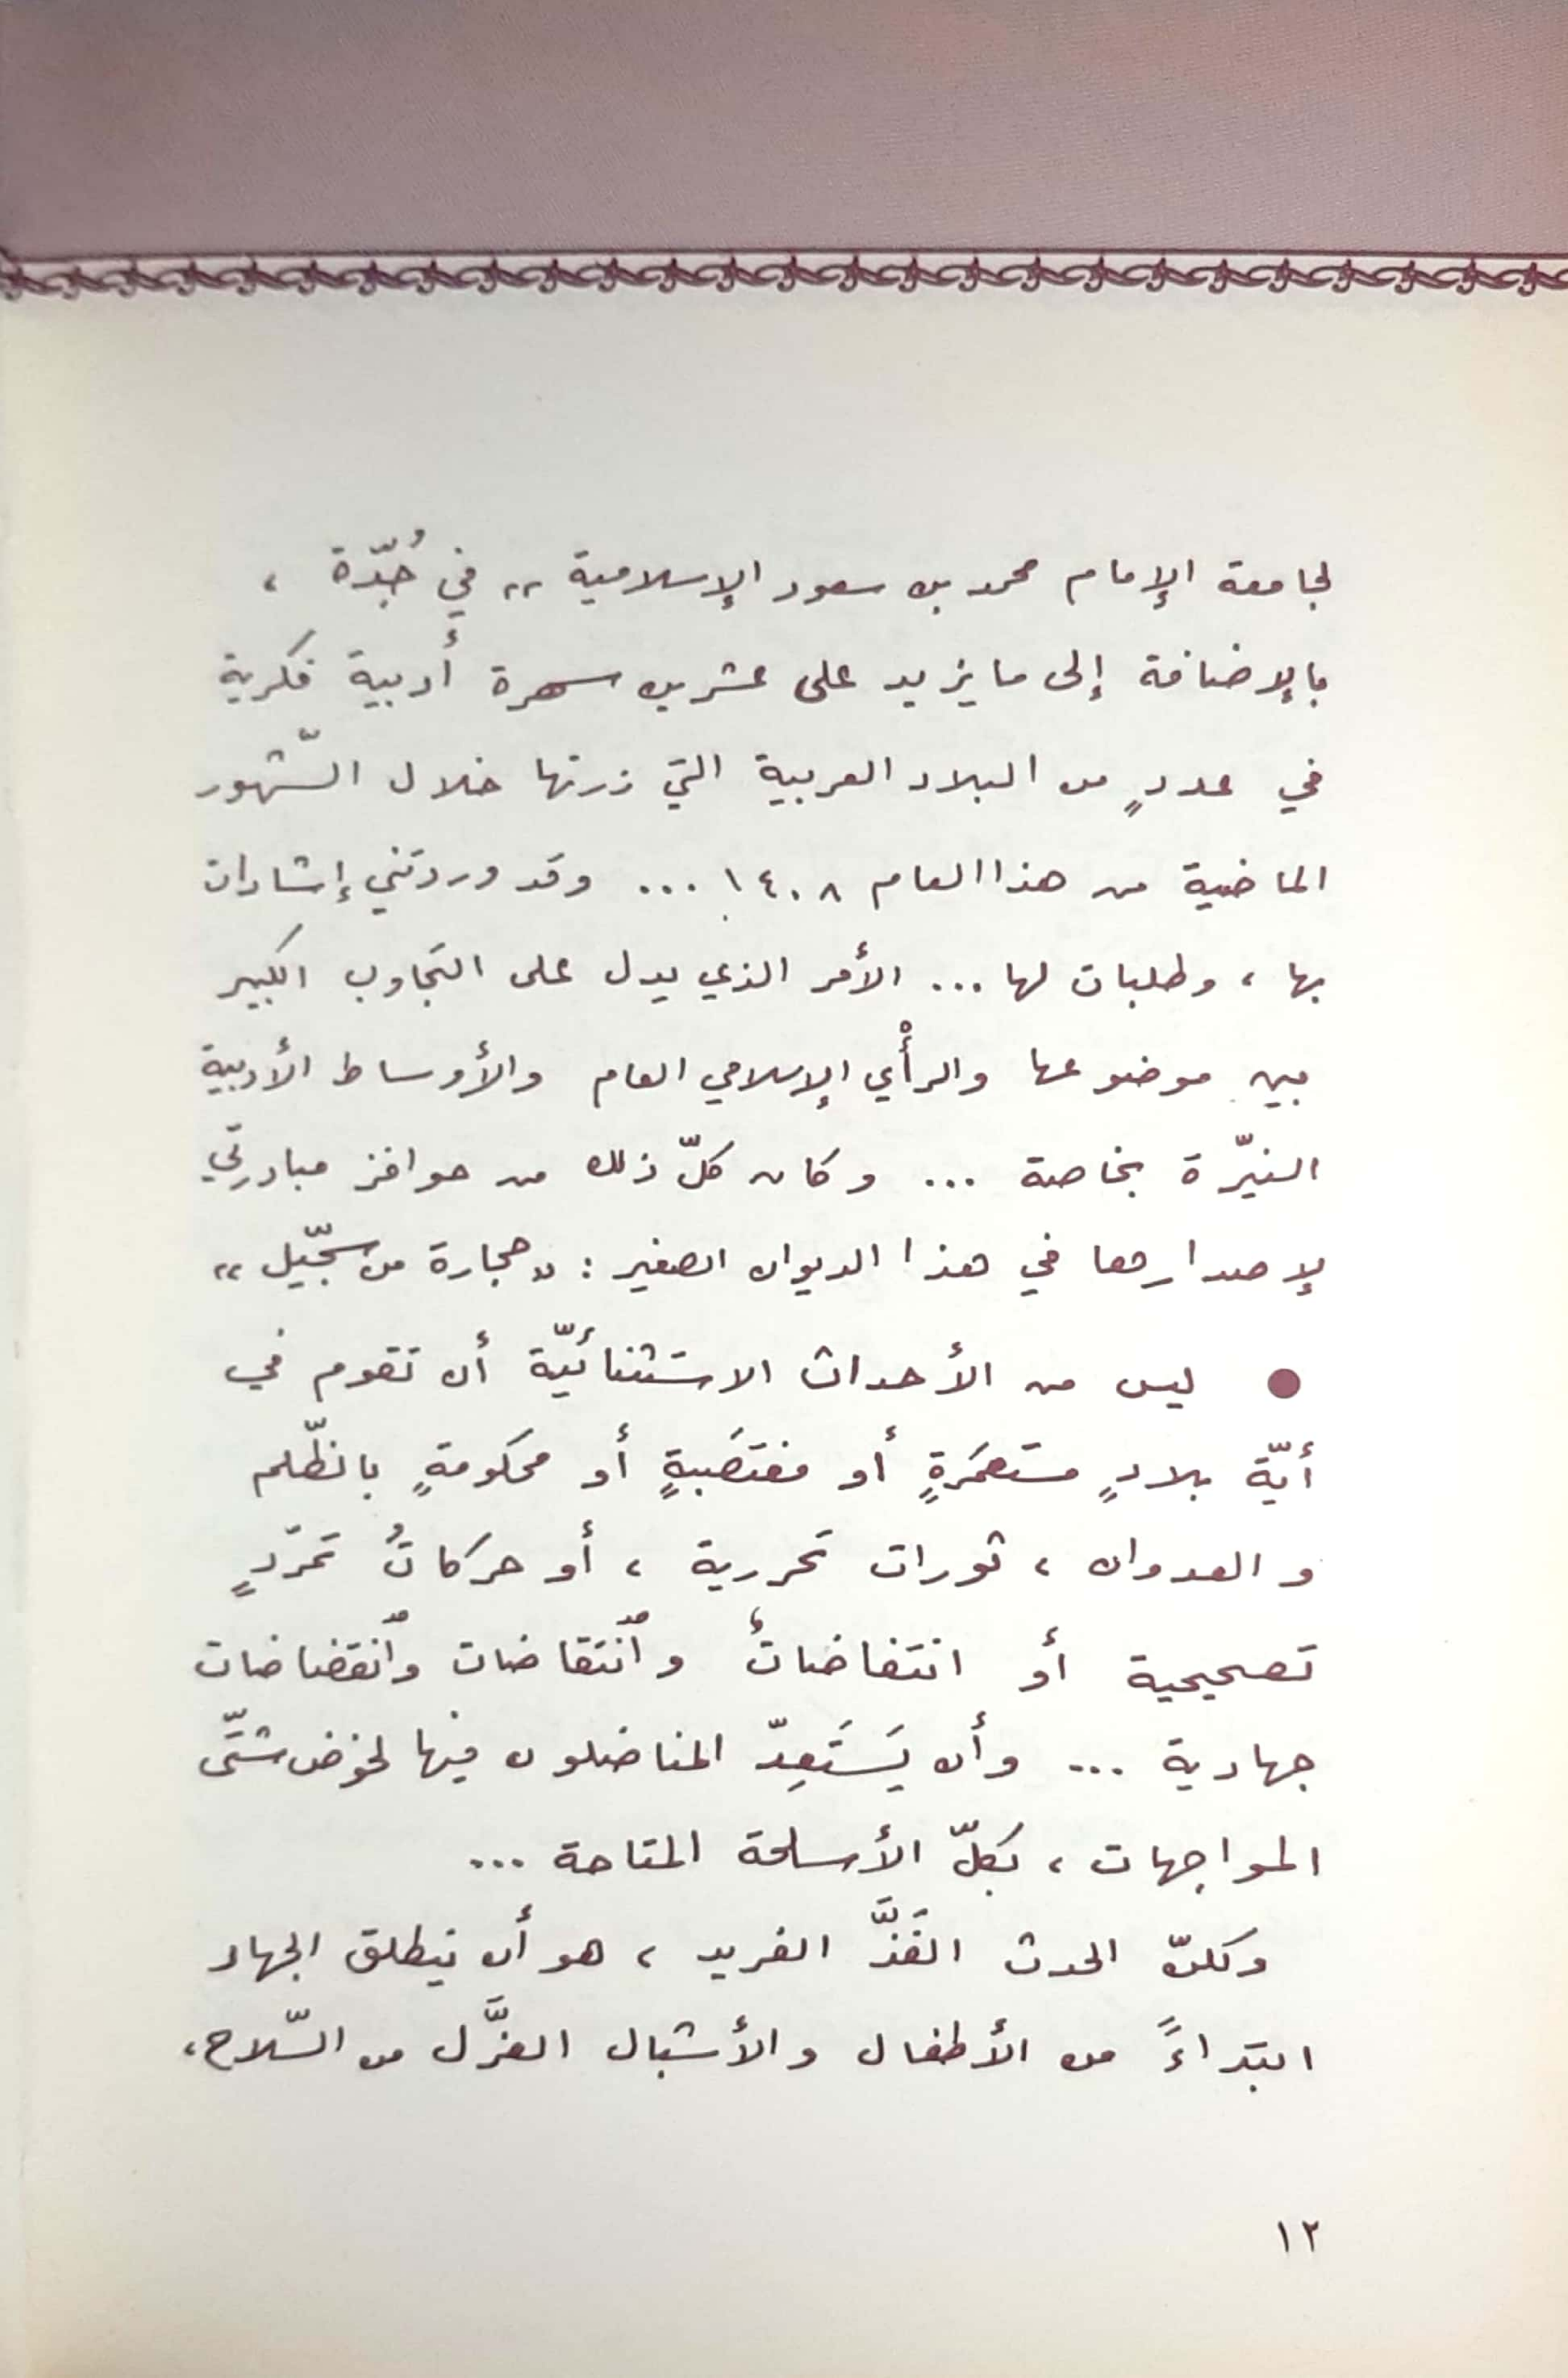 لجامعة الإمام محمد بن سعود الإسلامية » في جُدّة ،
بالإضافة إلى ما يزيد على عشرين سهرة أدبية فكرية
في عددٍ من البلاد العربية التي زرتها خلال الشّهور
الماضية من هذا العام ١٤٠٨ ... وقد وردتني إشادات
بها ، وطلبات لها ... الأمر الذي يدل على التجاوب الكبير
بين موضوعها والرأْي الإسلامي العام والأوساط الأدبية
النيّرة بخاصة ... وكان كلّ ذلك من حوافز مبادرتي
لإصدارها في هذا الديوان الصغير : « حجارة من سجّيل »
● ليس من الأحداث الاستثنائيّة أن تقوم في
أيّة بلادٍ مستعمَرةٍ أو مغتصَبةٍ أو محكومةٍ بالظّلم
والعدوان ، ثورات تحررية ، أو حركاتُ تمرّدٍ
تصحيحية أو انتفاضاتٌ وٱنتقاضات وٱنقضاضات
جهادية ... وأن يَستَعِدّ المناضلون فيها لخوض شتّى
المواجهات ، بكلّ الأسلحة المتاحة ...
ولكنّ الحدث الفَذَّ الفريد ، هو أن ينطلق الجهاد
ابتداءً من الأطفال والأشبال العزَّل من السّلاح ،
١٢